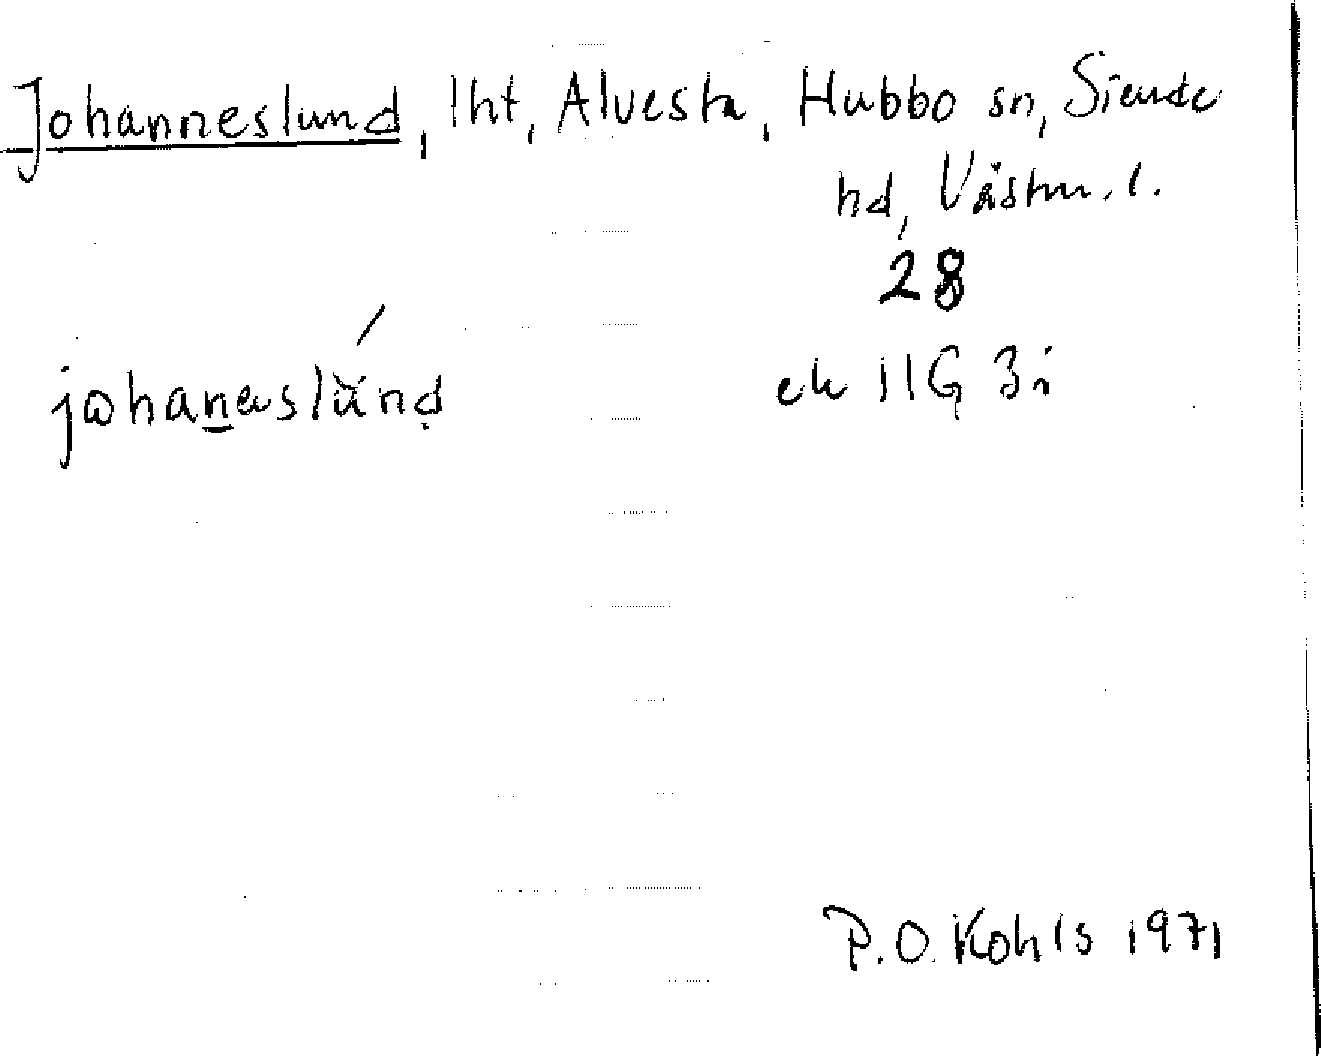 Johanneslund, lht, Alvesta, Hubbo sn, Siende
hd, Västm. l.
28
johanəslŭnd
ek 11G 3i
P.O. Kohls 1971